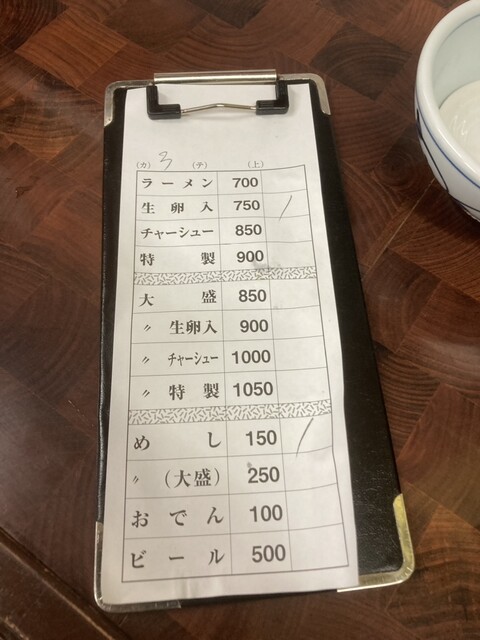 (カ) 3 (テ) (上)
ラーメン 700
生卵入 750 /
チャーシュー 850
特製 900
大盛 850
〃 生卵入 900
〃 チャーシュー 1000
〃 特製 1050
めし 150 /
〃 (大盛) 250
おでん 100
ビール 500